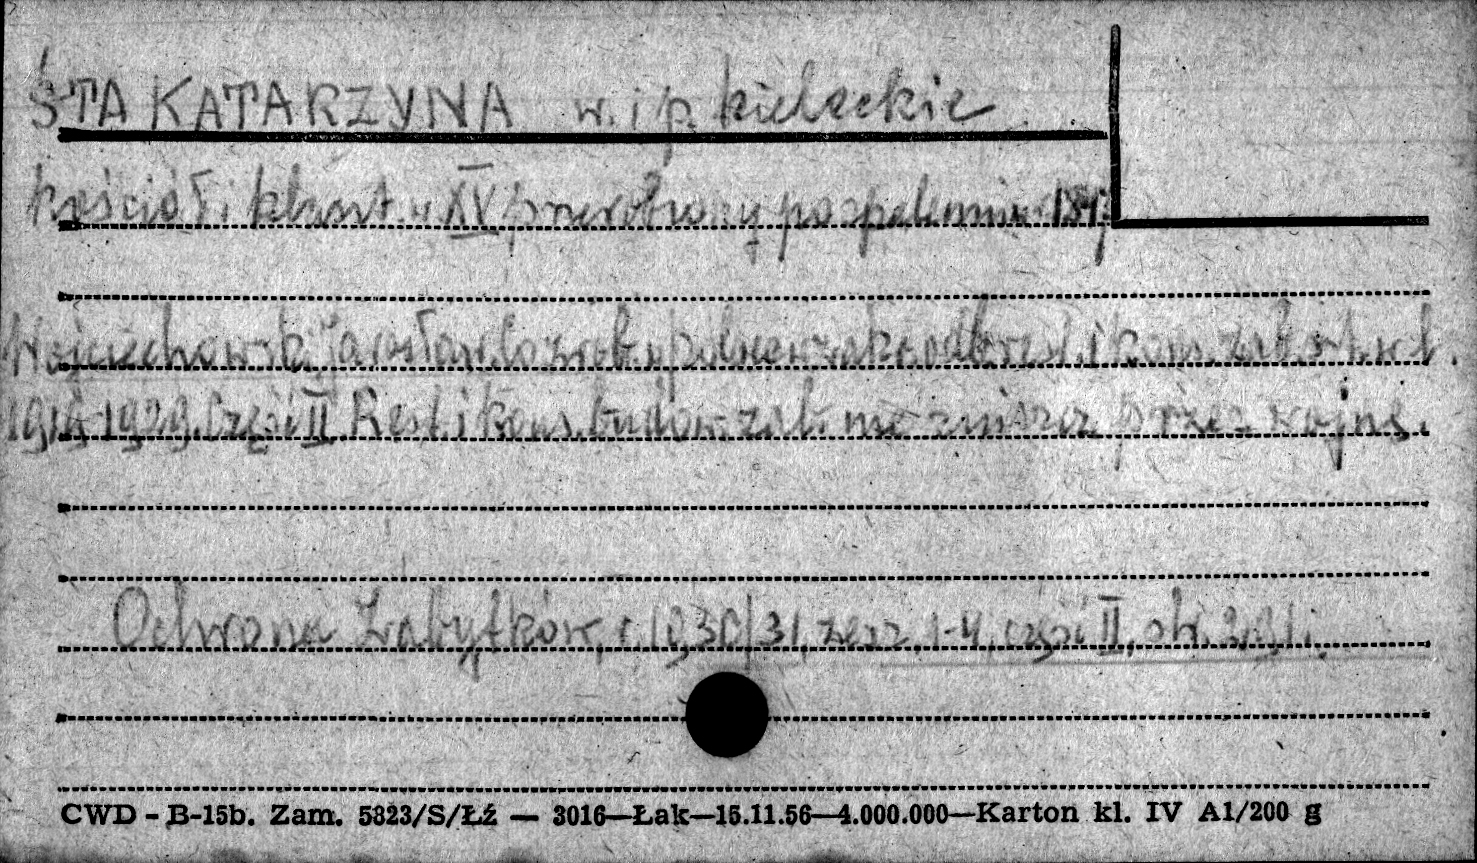 ŚTA KATARZYNA w. i p. kieleckie
kościół i klaszt. w XV przerobiony po spaleniu w 1847
Wojciechowski Jarosław. Co zrob. w polsce w zakr. odb. rest. i kons. zab. art. w l.
1914-1929. Część II. Rest. i kons. budow. zab. nie zniszcz. przez wojnę.
Ochrona Zabytków, r. 1930/31, zesz. 1-4, część II, str. 291.
CWD - B-15b. Zam. 5823/S/Łź — 3016—Łak—15.11.56—4.000.000—Karton kl. IV A1/200 g